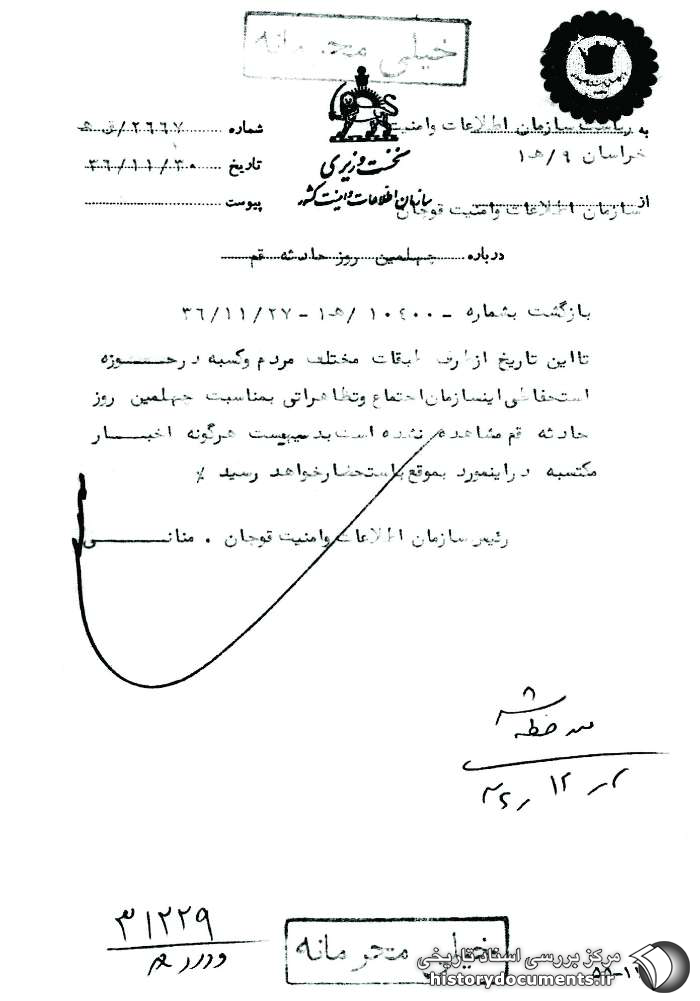 خیلی محرمانه
نخست وزیری
سازمان اطلاعات و امنیت کشور
به ریاست سازمان اطلاعات وامنیت
خراسان ۹/ه‍ ۱
از سازمان اطلاعات وامنیت قوچان
شماره ۲۶۶۷/ق ه‍
تاریخ ۳۶/۱۱/۳۰
پیوست
درباره چهلمین روز حادثه قم
بازگشت بشماره - ۱۰۴۰۰ /ه‍ ۱ - ۳۶/۱۱/۲۷
تااین تاریخ ازطرف طبقات مختلف مردم وکسبه درحوزه
استحفاظی اینسازمان اجتماع وتظاهراتی بمناسبت چهلمین روز
حادثه قم مشاهده نشده است بدیهیست هرگونه اخبار
مکتسبه دراینمورد بموقع باستحضارخواهد رسید ٪
رئیس سازمان اطلاعات وامنیت قوچان . منانی
ملاحظه شد
۳۱۲۲۹
خیلی محرمانه
مرکز بررسی اسناد تاریخی
historydocuments.ir